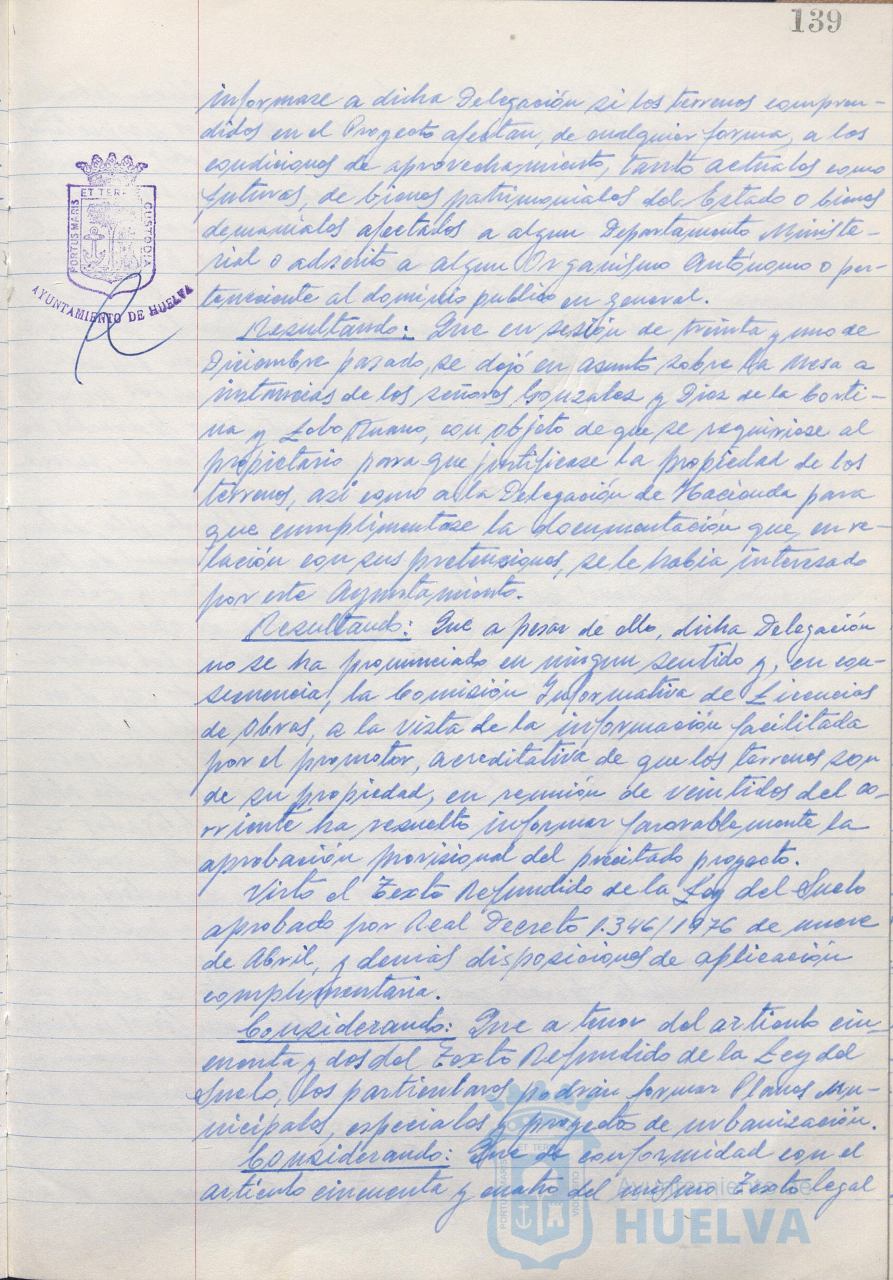 139
informase a dicha Delegación si los terrenos compren-
didos en el Proyecto afectan, de cualquier forma, a las
condiciones de aprovechamiento, tanto actuales como
futuras, de bienes patrimoniales del Estado o bienes
demaniales afectados a algun Departamento Ministe-
rial o adscrito a algun Organismo Autónomo o per-
teneciente al dominio publico en general.
PORTUS MARIS
ET TERRÆ
CUSTODIA
AYUNTAMIENTO DE HUELVA
Resultando: Que en sesión de treinta y uno de
Diciembre pasado, se dejó en asunto sobre la Mesa a
instancias de los señores González y Diez de la Corti-
na y Lobo Ruano, con objeto de que se requiriese al
propietario para que justificase la propiedad de los
terrenos, asi como a la Delegación de Hacienda para
que cumplimentase la documentación que, en re-
lación con sus pretensiones, se le habia interesado
por este Ayuntamiento.
Resultando: Que a pesar de ello, dicha Delegación
no se ha pronunciado en ningun sentido y, en con-
secuencia, la Comisión Informativa de Licencias
de Obras, a la vista de la información facilitada
por el promotor, acreditativa de que los terrenos son
de su propiedad, en reunión de veintidos del co-
rriente ha resuelto informar favorablemente la
aprobación provisional del precitado proyecto.
Visto el Texto Refundido de la Ley del Suelo
aprobado por Real Decreto 1.346/1976 de nueve
de Abril, y demás disposiciones de aplicación
complementaria.
Considerando: Que a tenor del articulo cin-
cuenta y dos del Texto Refundido de la Ley del
Suelo, los particulares podrán formar Planes Mu-
nicipales, especiales y proyecto de urbanización.
Considerando: Que de conformidad con el
articulo cincuenta y cuatro del mismo Texto legal
PORTUS MARIS
ET TERRÆ
CUSTODIA
Ayuntamiento de
HUELVA